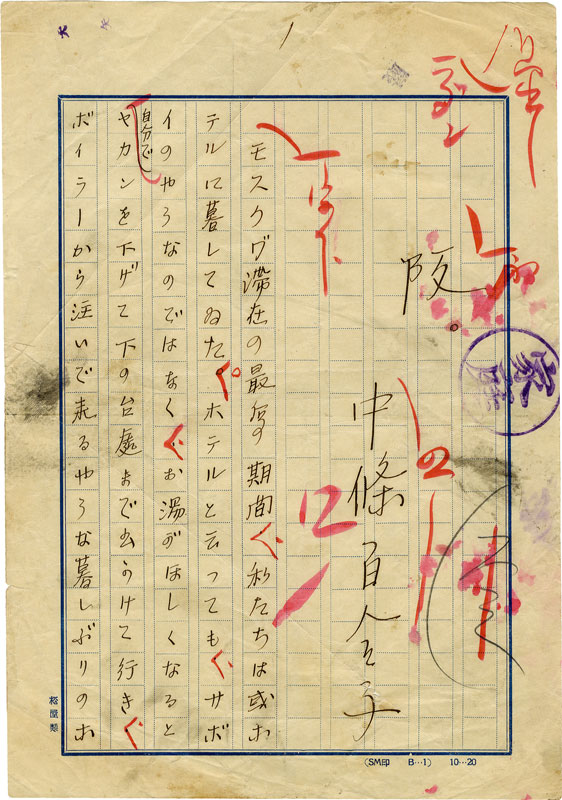 1
家庭
阪。
中條百合子
モスクヷ滞在の最后の期間、私たちは或ホ
テルに暮してゐた。ホテルと云つても、サボ
イのやうなのではなく、お湯がほしくなると
自分で
ヤカンを下げて下の台處まで出かけて行き、
ボイラーから注いで来るやうな暮しぶりのホ
(SM印 B…1) 10…20
松屋製